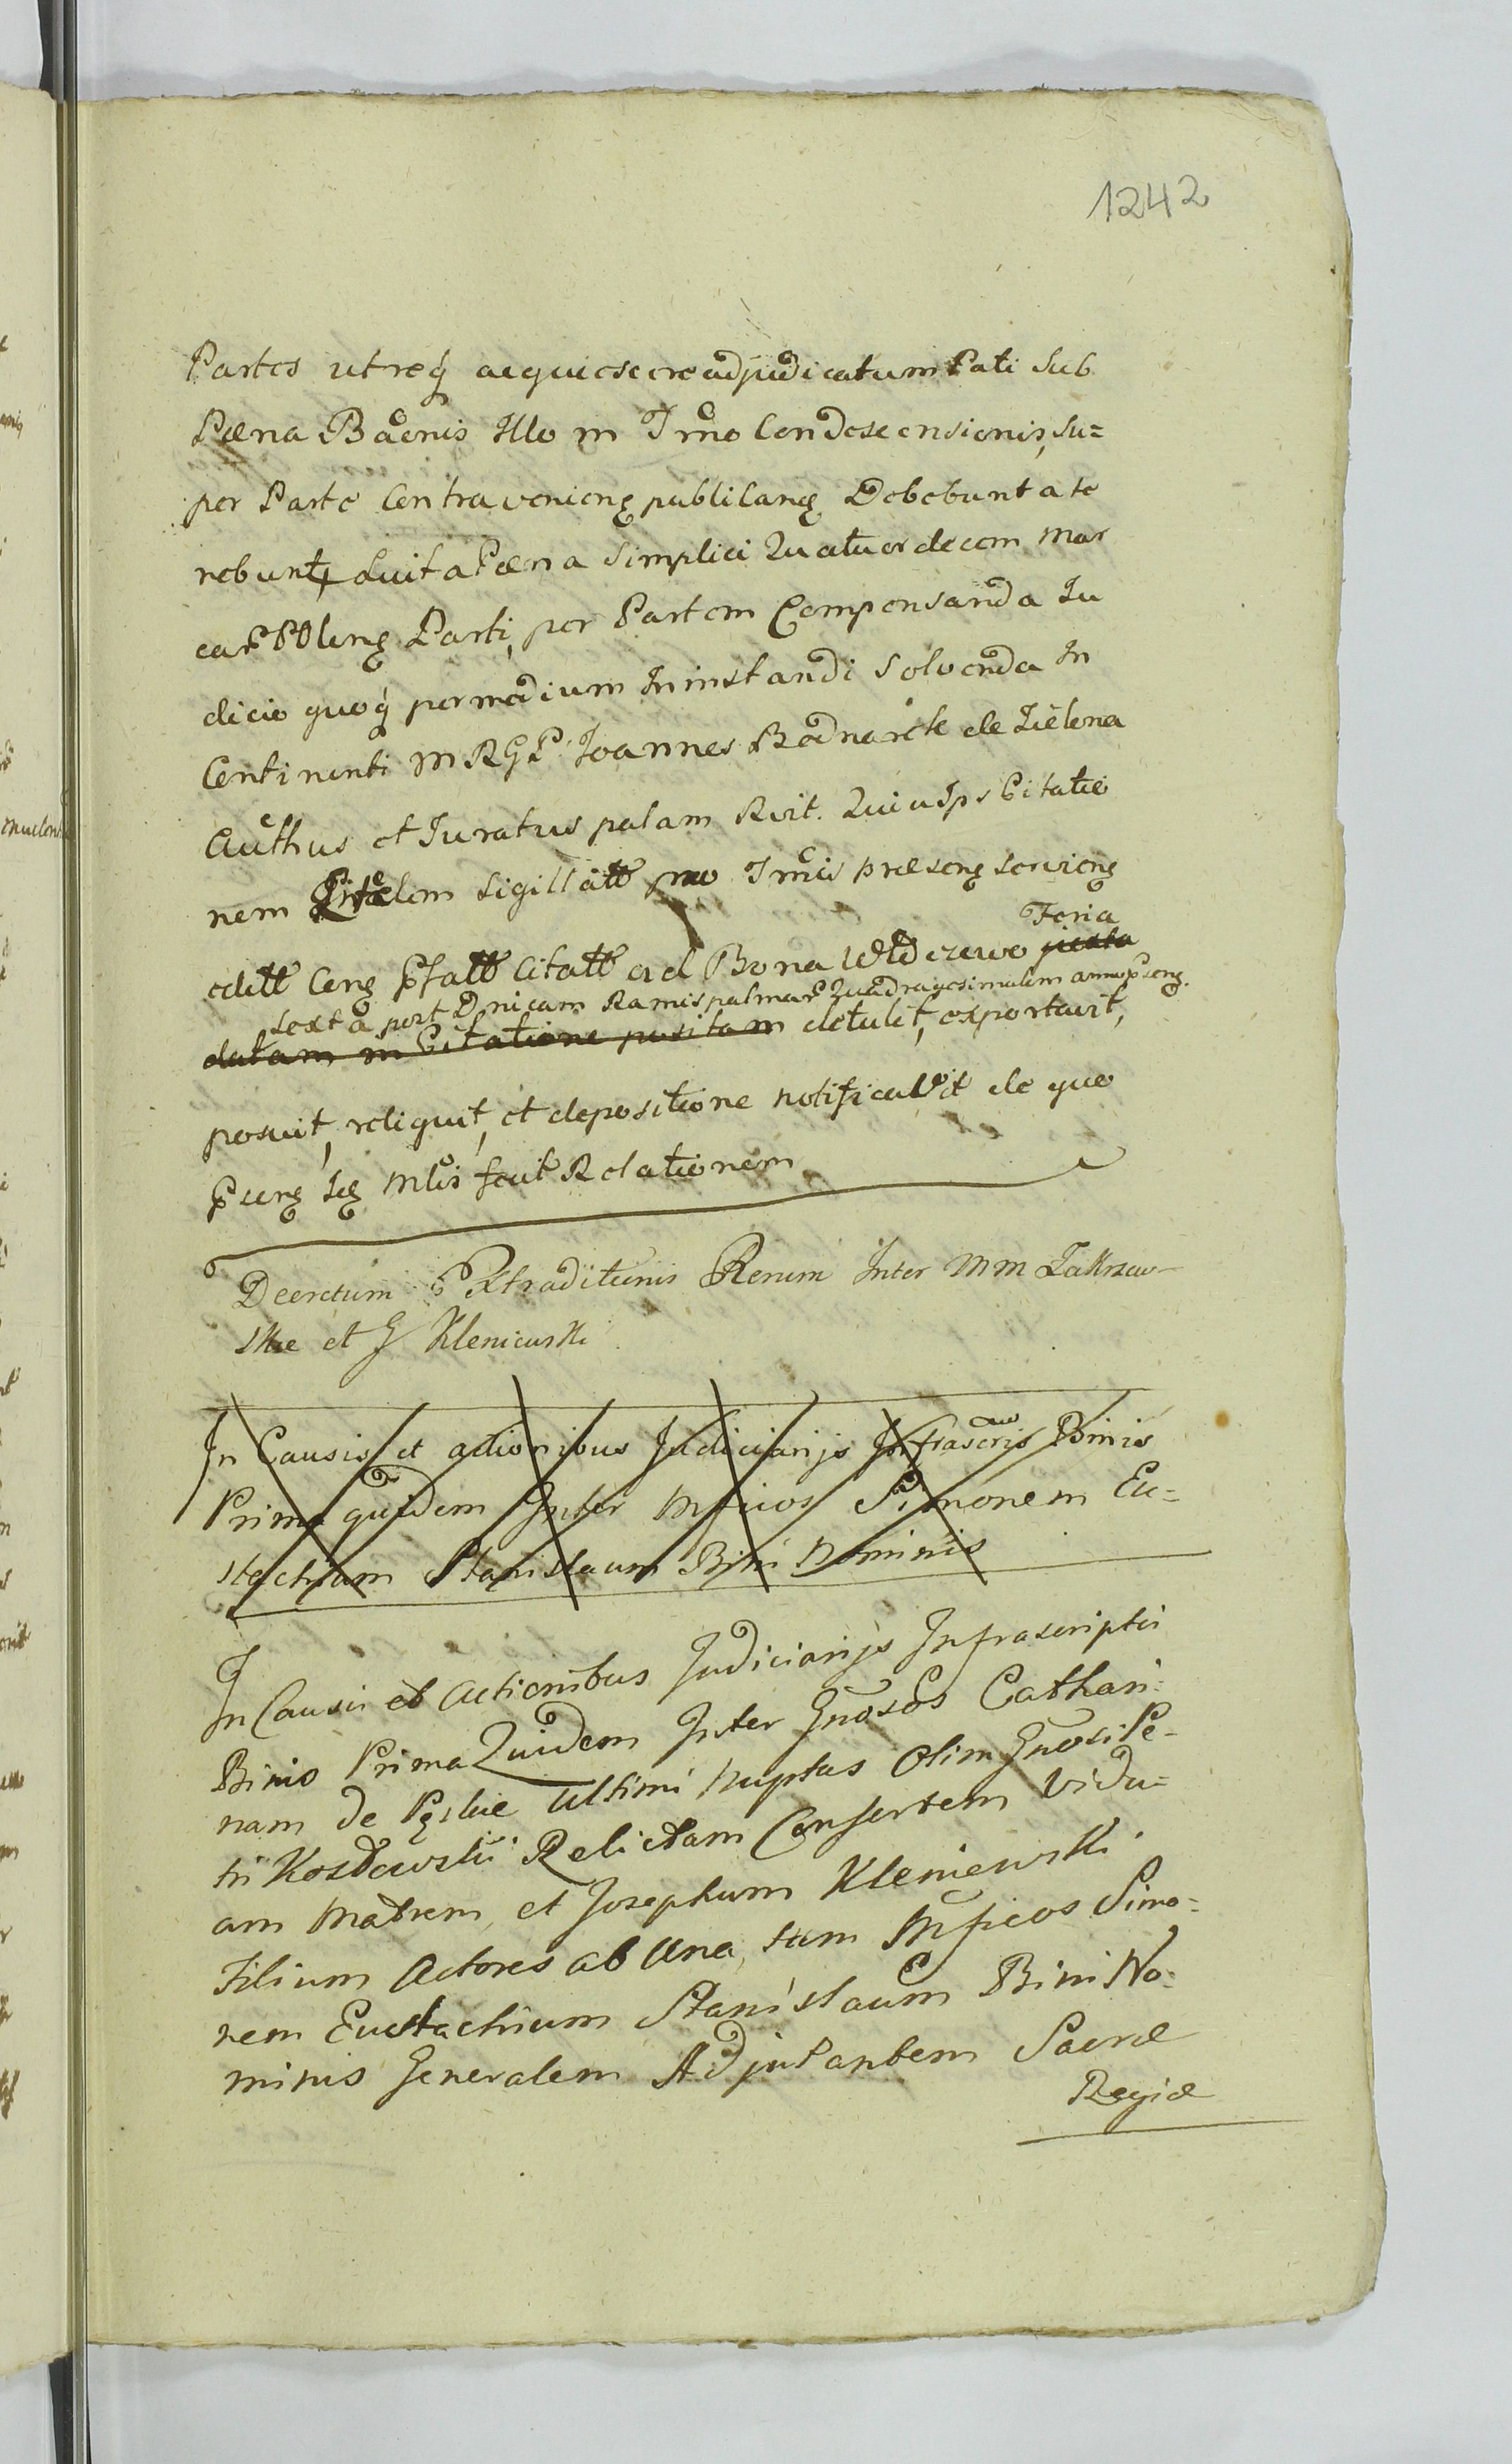 1242
Partes utreq acquiescere adjudicatum Pati sub
Pœna Bãonis Illo in Trno Condescensionis, su=
per Parte Contravenien publican Debebunt ate
nebunt Luita Pœna simplici Quatuordecem Mar
car POlen Parti, per Partem Compensanda Ju
dicio quoq per medium In instanti solvenda In
Continenti M R G P Joannes Bodnarek de Zielona
Authus et Juratus palam Rvit. Quia Ips Citatio
nem sigillatt pro Trmis præsen servien
Feria
editt Con Pfatt Citatt ad Bona juxta
sexta post Dnicam Ramispalmar Quadragesimalem anni psen.
datam in Citatione positam detulit, exportavit,
posuit, reliquit, et depositione notificavit de quo
Psens Seg Mlis fecit Relationem
Decretum Extraditionis Rerum Inter MM Zakrzew-
skie et G Kleniewski
In Causis et actionibus Judiciarijs Infrascris Binis
Prima quidem Inter Mficos Simonem Eu=
stachium Stanislaum Bini Nominis
In Causis et Actionibus Judiciarijs Infrascriptis
Binis Prima Quidem Inter Gnosos Cathari=
nam de ultimi nuptas Olim Gnosi Pe-
tri Relictam Consortem Vidu=
am Matrem, et Josephum Kleniewski
Filium Actores ab Una, tum Mficos Simo=
nem Eustachium Stanislaum Bini No=
minis Generalem Adjutantem Sacræ
Regiæ